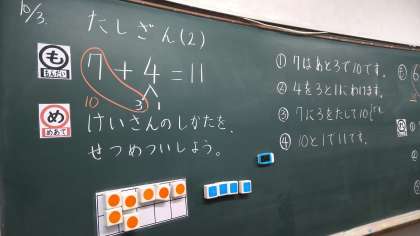 10/3.
たしざん(2)
も
もんだい
7+4=11
10
3 1
め
めあて
けいさんのしかたを、
せつめいしよう。
① 7はあと3で10です。
② 4を3と1にわけます。
③ 7に3をたして10
④ 10と1で11です。